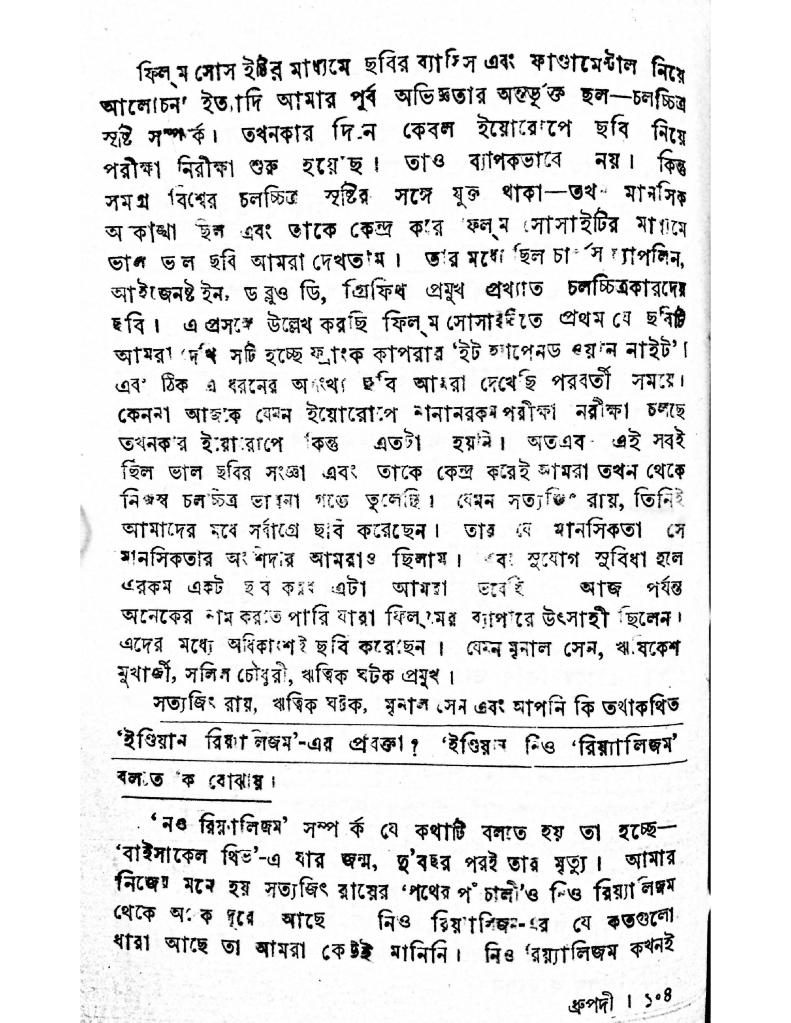 ফিল্ম সোসাইটির মাধ্যমে ছবির ব্যাসিস এবং ফাণ্ডামেন্টাল নিয়ে
আলোচনা ইত্যাদি আমার পূর্ব অভিজ্ঞতার অন্তর্ভুক্ত ছিল—চলচ্চিত্র
সৃষ্টি সম্পর্কে। তখনকার দিনে কেবল ইয়োরোপে ছবি নিয়ে
পরীক্ষা নিরীক্ষা শুরু হয়েছে। তাও ব্যাপকভাবে নয়। কিন্তু
সমগ্র বিশ্বের চলচ্চিত্র সৃষ্টির সঙ্গে যুক্ত থাকা—তখন মানসিক
আকাঙ্খা ছিল এবং তাকে কেন্দ্র করে ফিল্ম সোসাইটির মাধ্যমে
ভাল ভাল ছবি আমরা দেখতাম। তার মধ্যে ছিল চার্লস চ্যাপলিন,
আইজেনষ্টইন, ডব্লুও ডি, গ্রিফিথ প্রমুখ প্রখ্যাত চলচ্চিত্রকারদের
ছবি। এ প্রসঙ্গে উল্লেখ করছি ফিল্ম সোসাইটিতে প্রথম যে ছবিটি
আমরা দেখি সেটি হচ্ছে ফ্রাংক কাপরার 'ইট হ্যাপেনড ওয়ান নাইট'।
এবং ঠিক এ ধরনের অসংখ্য ছবি আমরা দেখেছি পরবর্তী সময়ে।
কেননা আজকে যেমন ইয়োরোপে নানানরকম পরীক্ষা নিরীক্ষা চলছে
তখনকার ইয়োরোপে কিন্তু এতটা হয়নি। অতএব এই সবই
ছিল ভাল ছবির সংজ্ঞা এবং তাকে কেন্দ্র করেই আমরা তখন থেকে
নিজস্ব চলচ্চিত্র ভাবনা গড়ে তুলেছি। যেমন সত্যজিৎ রায়, তিনিই
আমাদের মধ্যে সর্বাগ্রে ছবি করেছেন। তার যে মানসিকতা সে
মানসিকতার অংশিদার আমরাও ছিলাম। এবং সুযোগ সুবিধা হলে
এরকম একটা ছবি করব এটা আমরা ভেবেছি আজ পর্যন্ত
অনেকের নাম করতে পারি যারা ফিল্মের ব্যাপারে উৎসাহী ছিলেন।
এদের মধ্যে অধিকাংশই ছবি করেছেন। যেমন মৃনাল সেন, ঋষিকেশ
মুখার্জী, সলিল চৌধুরী, ঋত্বিক ঘটক প্রমুখ।
সত্যজিৎ রায়, ঋত্বিক ঘটক, মৃনাল সেন এবং আপনি কি তথাকথিত
'ইণ্ডিয়ান রিয়ালিজম'-এর প্রবক্তা? 'ইণ্ডিয়ান নিও রিয়্যালিজম'
বলতে কি বোঝায়।
'নিও রিয়্যালিজম' সম্পর্কে যে কথাটি বলতে হয় তা হচ্ছে—
'বাইসাকেল থিভ'-এ যার জন্ম, দু'বছর পরই তার মৃত্যু। আমার
নিজের মনে হয় সত্যজিৎ রায়ের 'পথের পাঁচালী'ও নিও রিয়্যালিজম
থেকে অনেক দূরে আছে নিও রিয়ালিজম-এর যে কতগুলো
ধারা আছে তা আমরা কেউই মানিনি। নিও রিয়্যালিজম কখনই
ধ্রুপদী । ১০৪